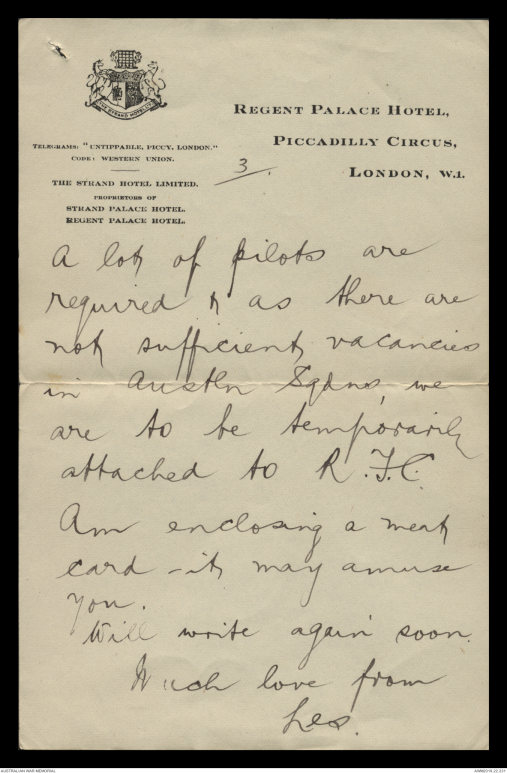 THE STRAND HOTEL LTD
REGENT PALACE HOTEL,
PICCADILLY CIRCUS,
LONDON, W.1.
TELEGRAMS: "UNTIPPABLE, PICCY, LONDON."
CODE: WESTERN UNION.
THE STRAND HOTEL LIMITED.
PROPRIETORS OF
STRAND PALACE HOTEL.
REGENT PALACE HOTEL.
3.
A lot of pilots are
required & as there are
not sufficient vacancies
in Austln Sqdns, we
are to be temporarily
attached to R.F.C.
Am enclosing a meat
card - it may amuse
you.
Will write again soon.
Much love from
Les.
AUSTRALIAN WAR MEMORIAL